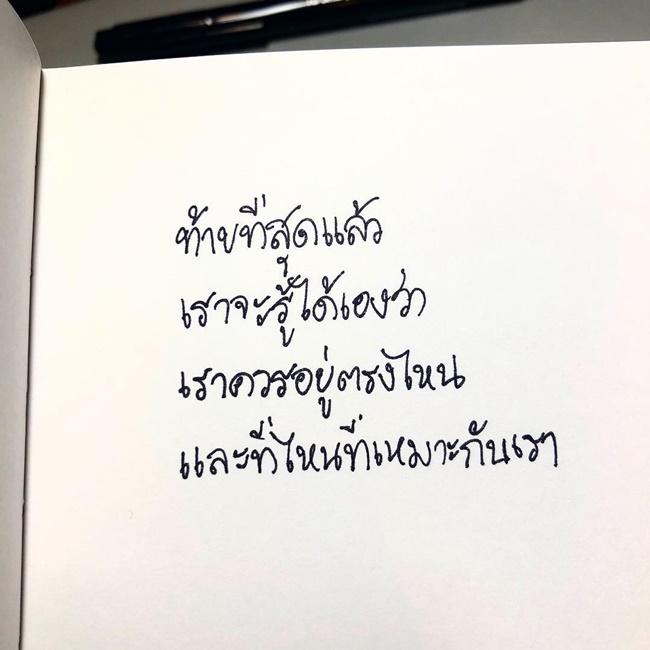 ท้ายที่สุดแล้ว
เราจะรู้ได้เองว่า
เราควรอยู่ตรงไหน
และที่ไหนที่เหมาะกับเรา